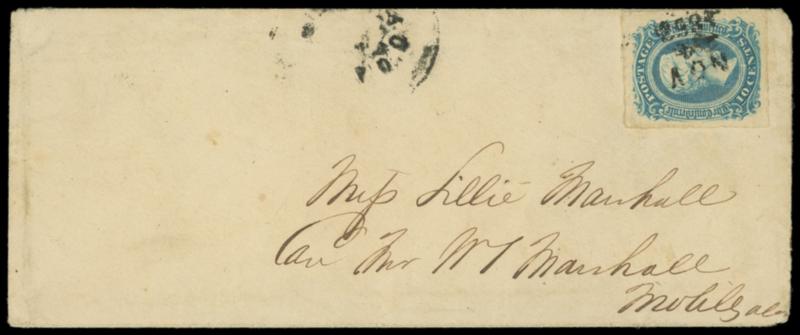 POSTAGE
TEN CENTS
The Confederate
NOV
Miss Lillie Marshall
Care Mr W T Marshall
Mobile Ala